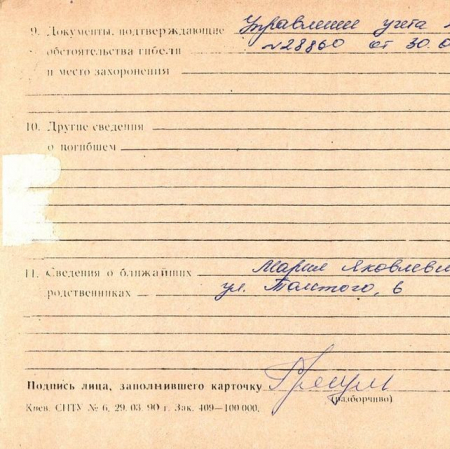 9. Документы, подтверждающие Управление учета
обстоятельства гибели №28860 от 30.0
и место захоронения
10. Другие сведения
о погибшем
11. Сведения о ближайших Мария Яковлевн
родственниках ул. Толстого, 6
Подпись лица, заполнившего карточку
(разборчиво)
Киев. СПТУ № 6, 29. 03. 90 г. Зак. 409—100 000.